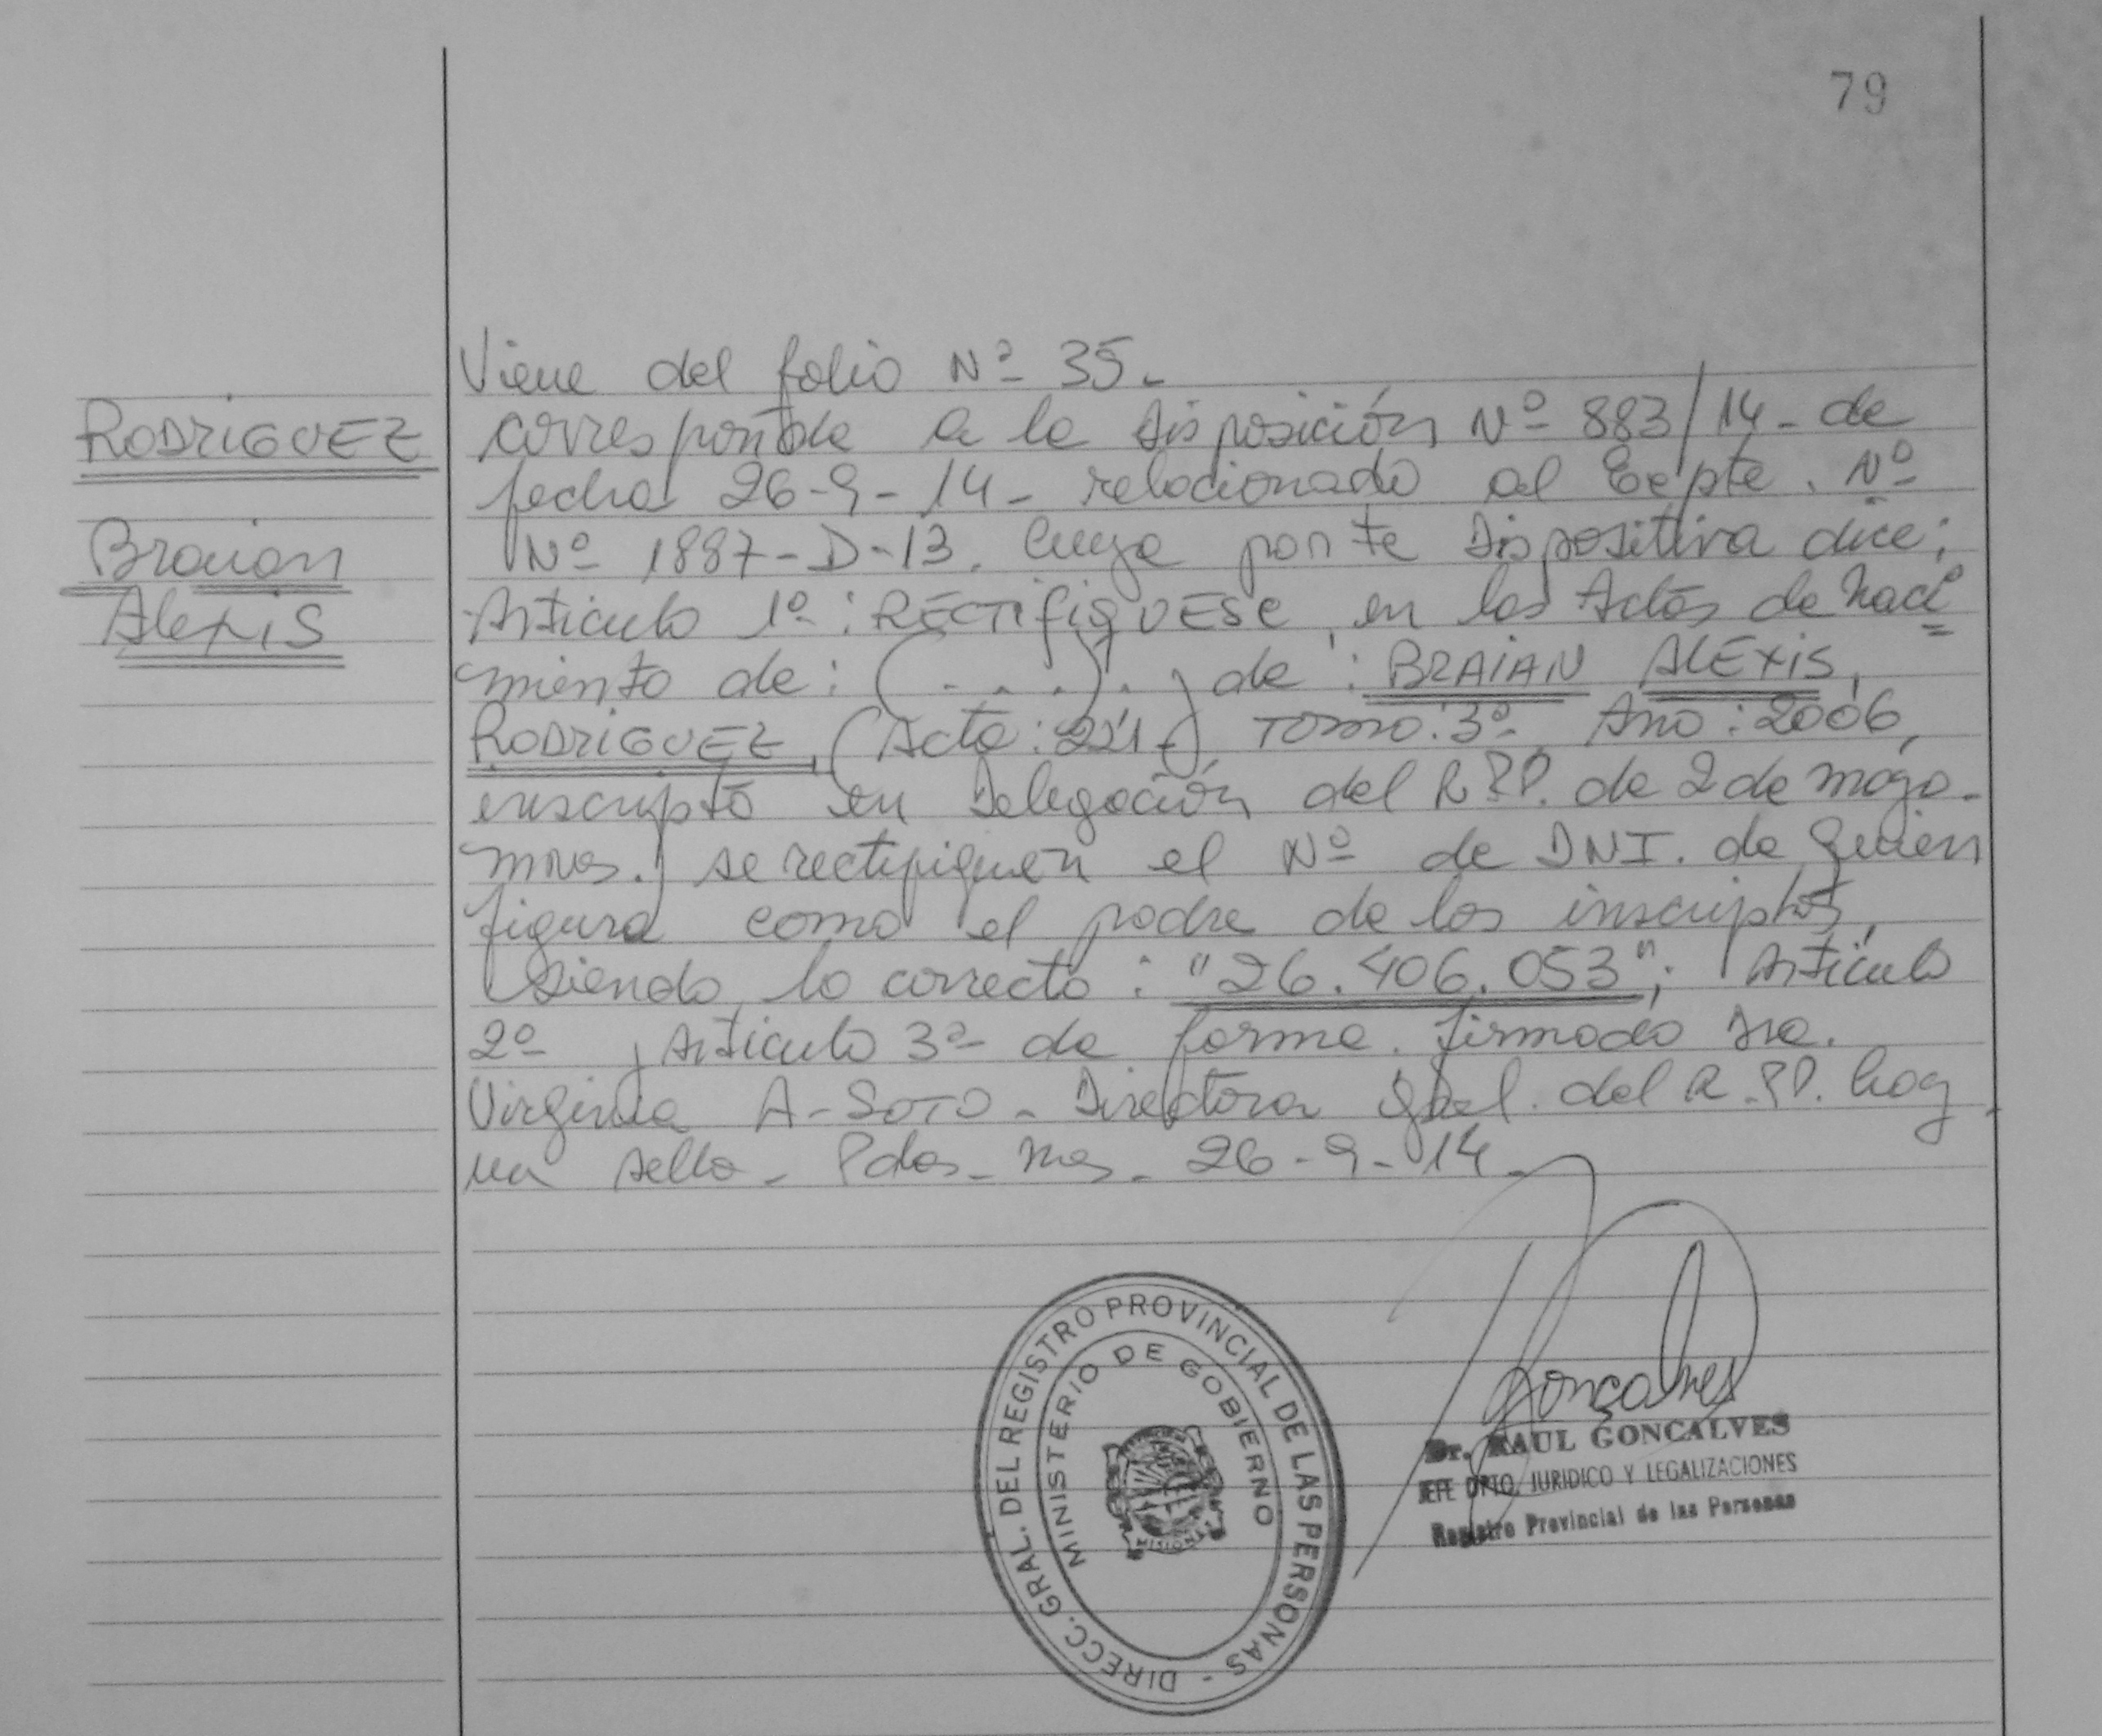 79
Viene del folio Nº 35.
RODRIGUEZ
Braian
Alexis
corresponde a la Disposición Nº 883/14 - de
fecha 26-9-14 - relacionado al Expte. Nº
Nº 1887-D-13. Cuya parte Dispositiva dice:
Articulo 1º: RECTIFIQUESE, en las Actas de Naci
miento de: (. . . .). . ) de: BRAIAN ALEXIS,
RODRIGUEZ, (Acta: 221-) Tomo: 3º Año: 2006,
inscripto en Delegación del R.P.P. de 2 de mayo -
mnes. se rectifiquen el Nº de DNI. de quien
figura como el padre de los inscriptos,
siendo lo correcto: "26.406.053"; Articulo
2º y Articulo 3º de forma. firmado Dra.
Virginia A - SOTO - Directora Gral. del R.P.P. hay
un sello - Pdas - Mes - 26-9-14 -
Gonçalves
Dr. RAUL GONCALVES
JEFE DPTO. JURIDICO Y LEGALIZACIONES
Registro Provincial de las Personas
DIRECC. GRAL. DEL REGISTRO PROVINCIAL DE LAS PERSONAS -
MINISTERIO DE GOBIERNO
MISIONES